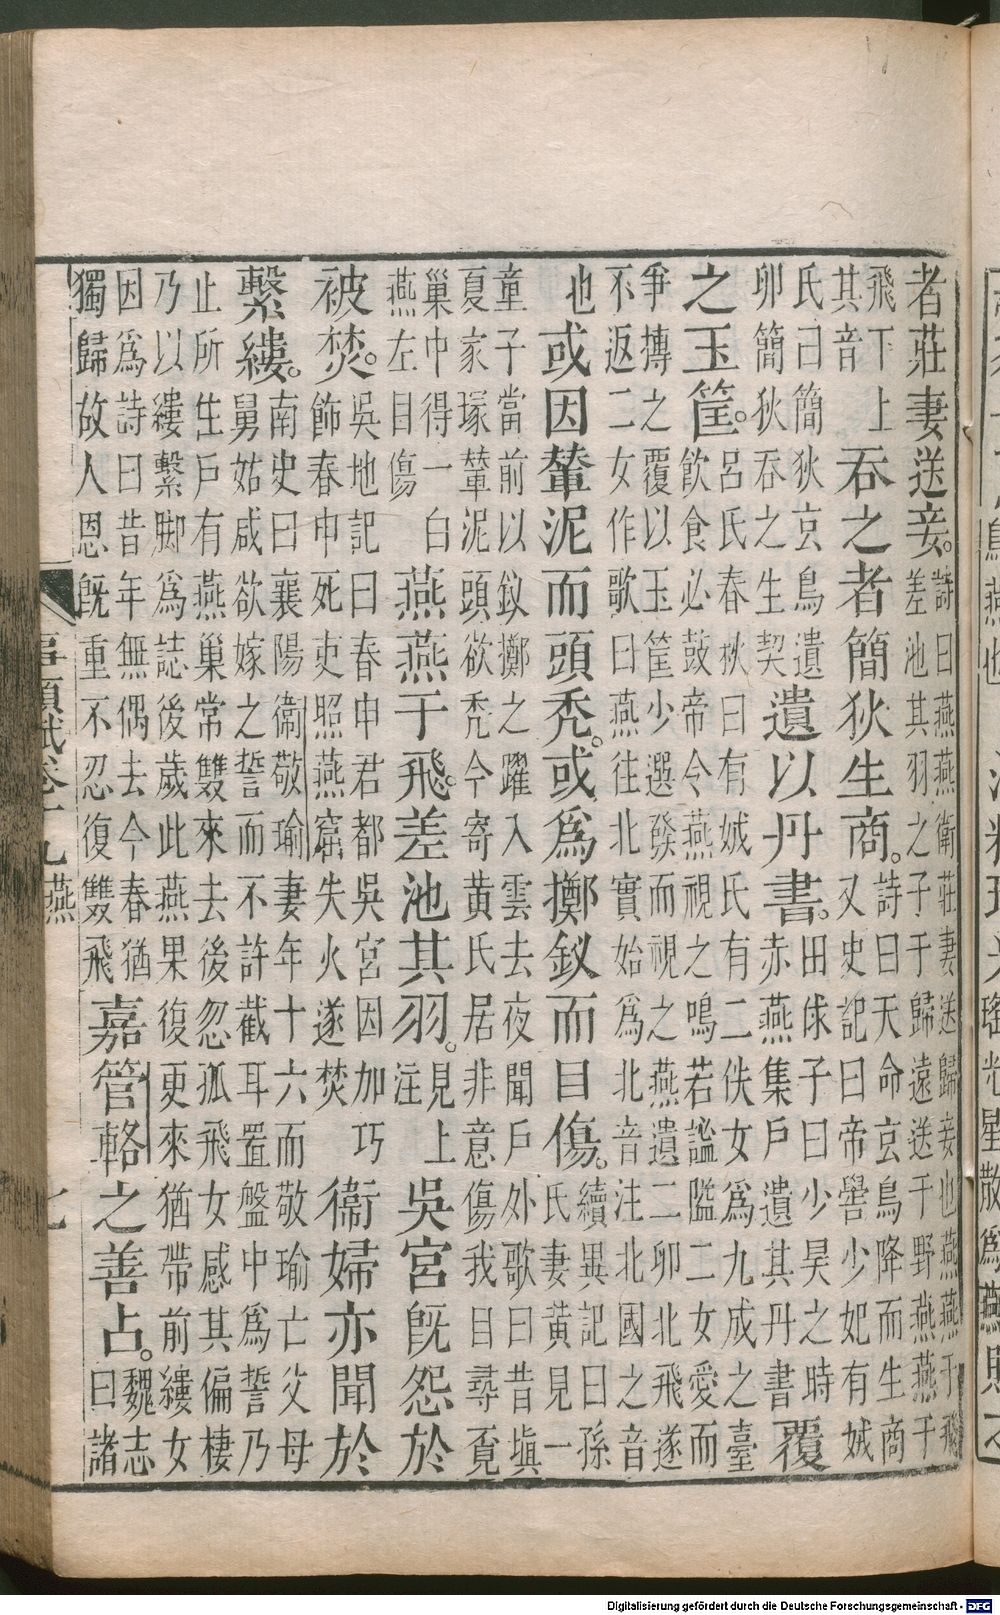 者莊妻送妾。詩曰燕燕衛莊妻送歸妾也燕燕于飛
差池其羽之子于歸遠送于野燕燕于
飛下上
其音
吞之者簡狄生商。詩曰天命玄鳥降而生商
又史記曰帝嚳少妃有娀
氏曰簡狄玄鳥遺
卵簡狄吞之生契
遺以丹書。田俅子曰少昊之時
赤燕集戶遺其丹書
覆
之玉筐。呂氏春秋曰有娀氏有二佚女爲九成之臺
飲食必鼓帝令燕視之鳴若謚隘二女愛而
爭摶之覆以玉筐少選發而視之燕遺二卵北飛遂
不返二女作歌曰燕往北實始爲北音注北國之音
也
或因輦泥而頭禿。或爲擲釵而目傷。續異記曰孫
氏妻黃見一
童子當前以釵擲之躍入雲去夜聞戶外歌曰昔塡
夏家塚輦泥頭欲禿今寄黃氏居非意傷我目尋覓
巢中得一白
燕左目傷
燕燕于飛。差池其羽。見上
注
吳宮旣怨於
被焚。吳地記曰春申君都吳宮因加巧
飾春申死吏照燕窟失火遂焚
衞婦亦聞於
繫縷。南史曰襄陽衞敬瑜妻年十六而敬瑜亡父母
舅姑咸欲嫁之誓而不許截耳置盤中爲誓乃
止所生戶有燕巢常雙來去後忽孤飛女感其偏棲
乃以縷繫脚爲誌後歲此燕果復更來猶帶前縷女
因爲詩曰昔年無偶去今春猶
獨歸故人恩旣重不忍復雙飛
嘉管輅之善占。魏志
曰諸
事類賦卷十九 燕 七
Digitalisierung gefördert durch die Deutsche Forschungsgemeinschaft - DFG